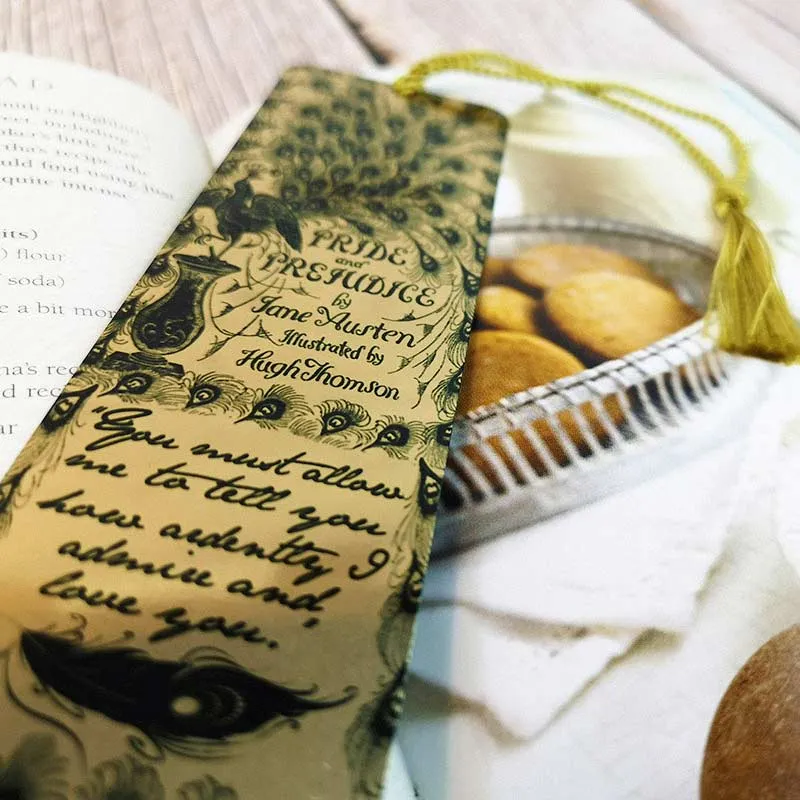 AD
mith in Highland
eet, including
oker's little b
rtha's recipe, the
ould find using just
quite intense
its)
) flour
f soda)
e a bit mor
na's rec
d rec
ar
PRIDE
and
PREJUDICE
by
Jane Austen
Illustrated by
Hugh Thomson
"You must allow
me to tell you
how ardently I
admire and
love you."